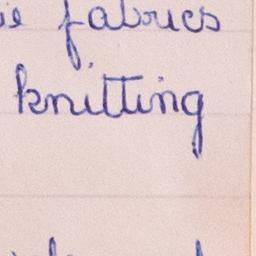 fabrics
knitting